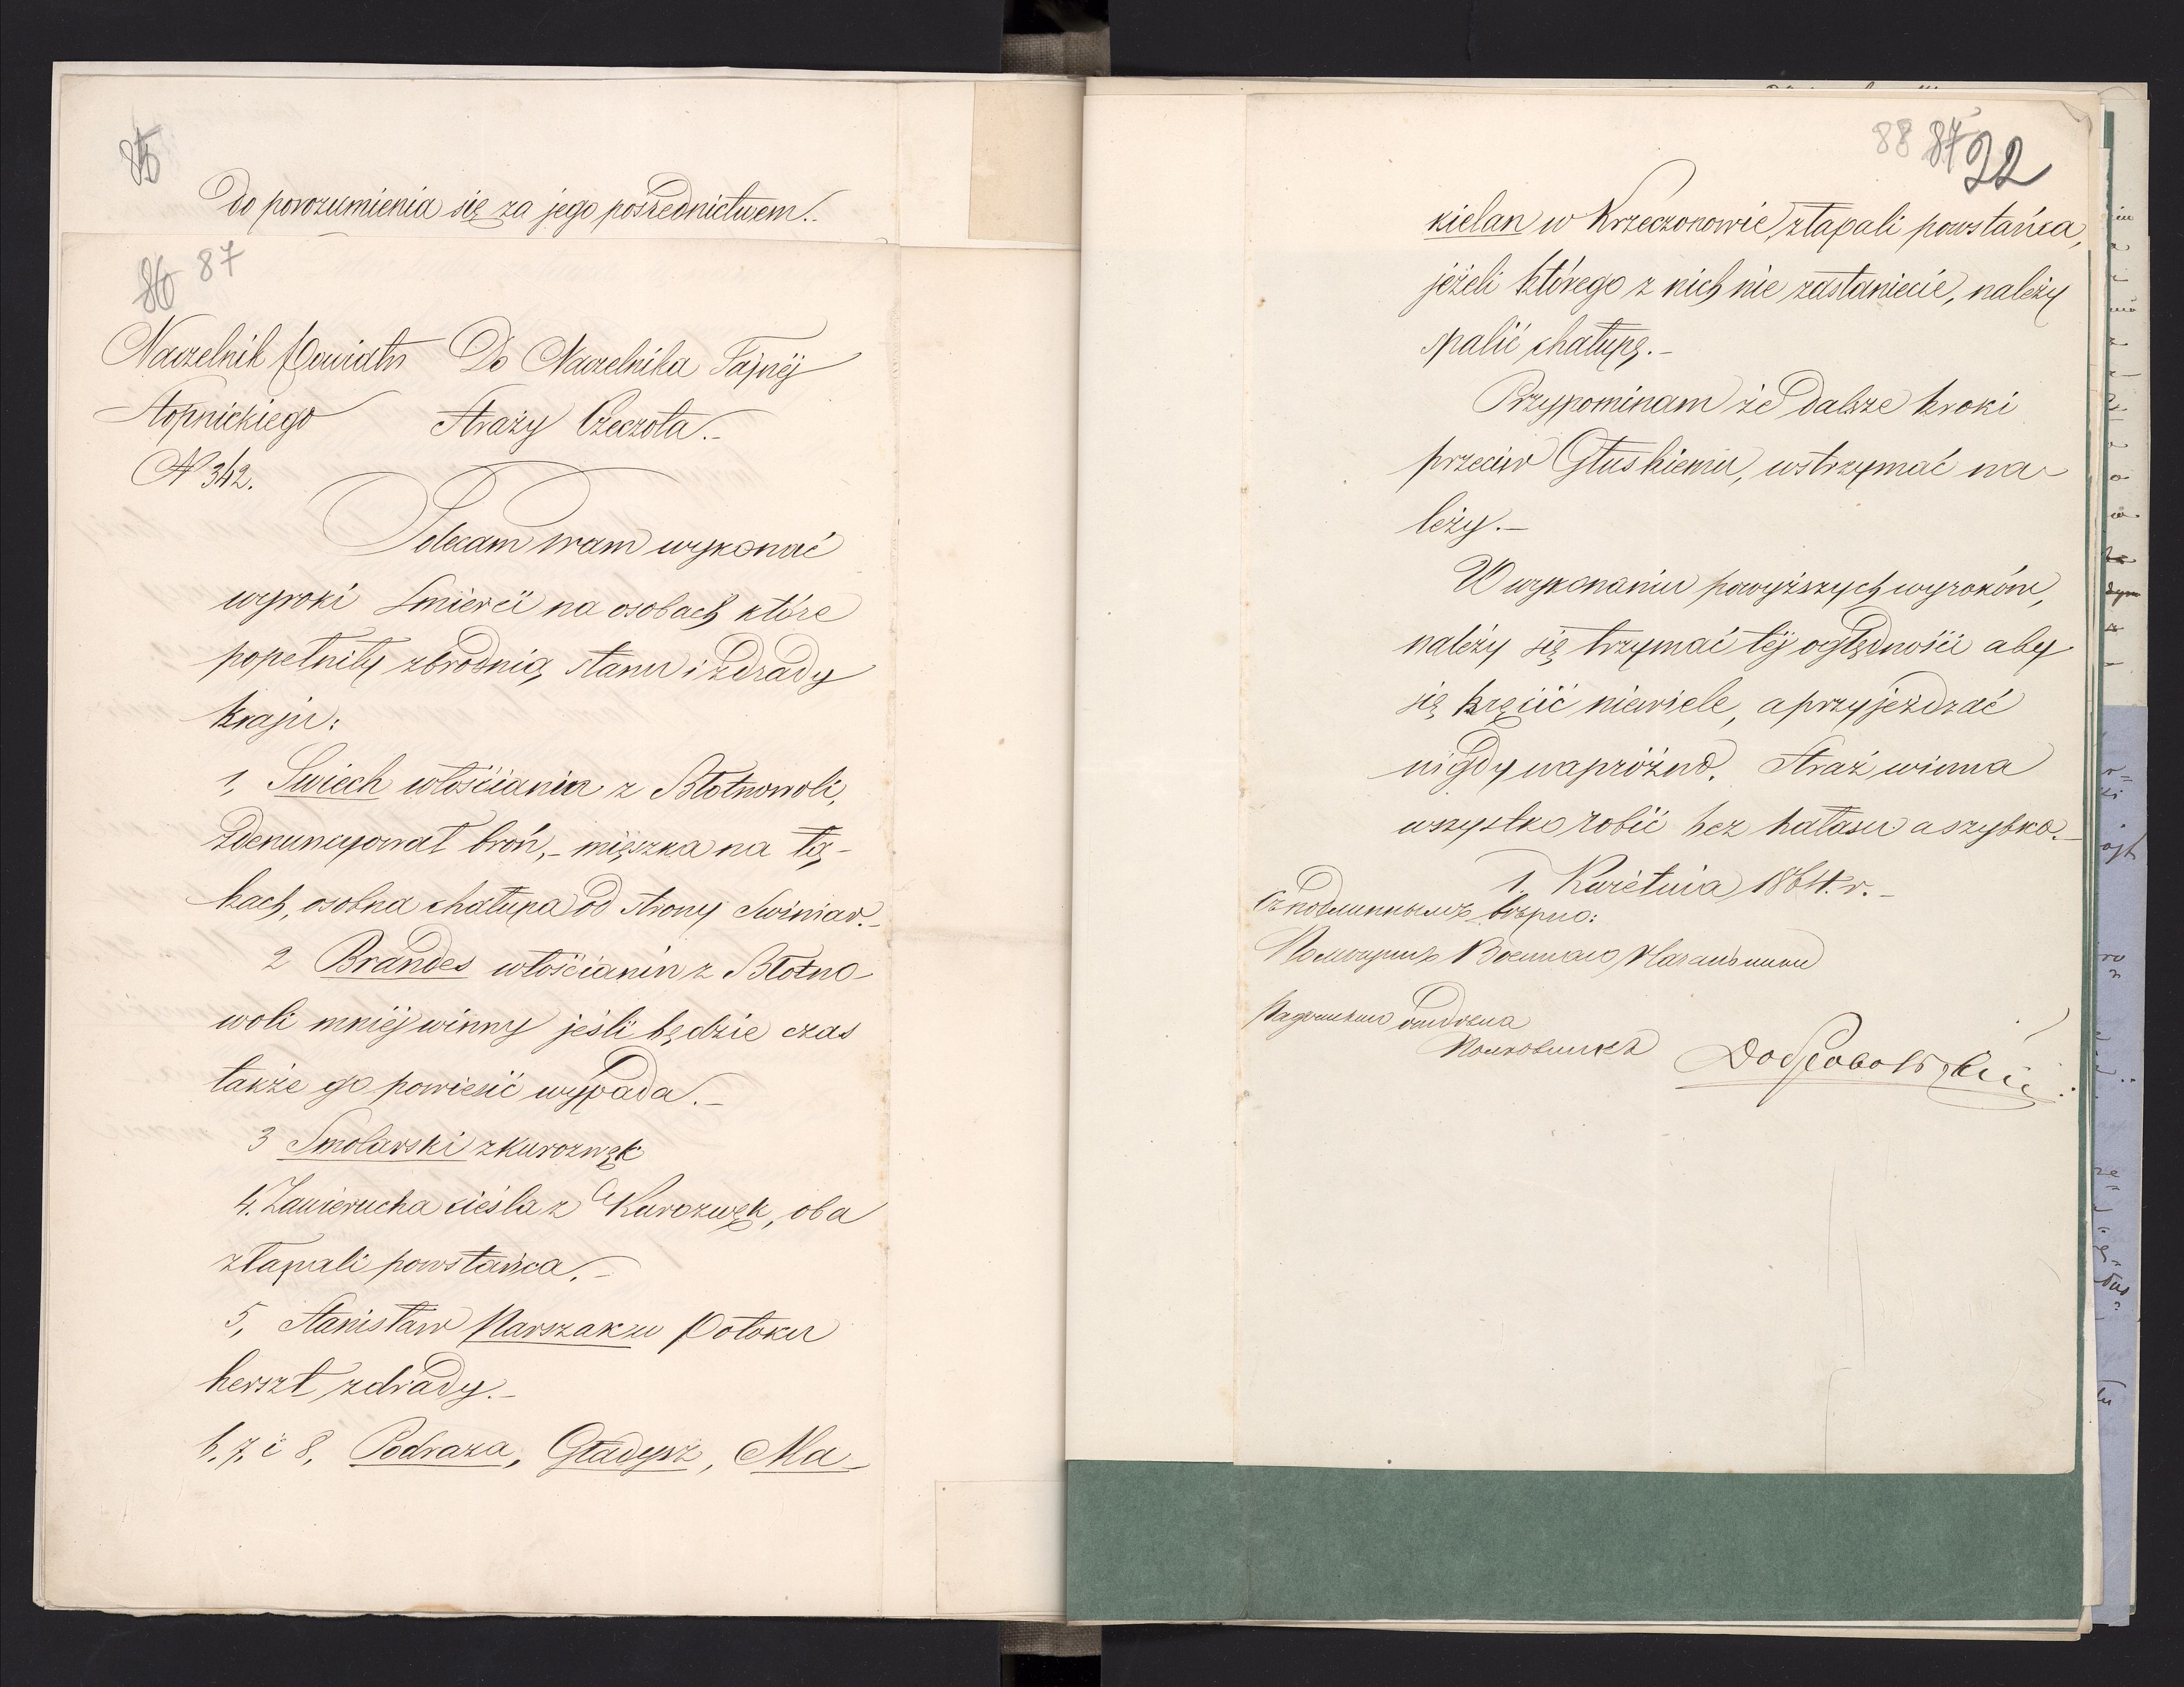 85
Do porozumienia się za jego pośrednictwem.
86 87
Naczelnik Powiatu
Stopnickiego
N 342.
Do Naczelnika Tajnéj
Straży Czeczota.-
Polecam wam wykonać
wyroki śmierci na osobach które
popełniły zbrodnię stanu i zdrady
kraju:
1, Swiech włościanin z Błotnowoli,
zdenuncyował broń,- mięszka na łę-
kach, osobna chałupa od strony Swiniar.-
2 Brandes włościanin z Błotno-
woli mniéj winny jeśli będzie czas
także go powiesić wypada.-
3 Smolarski z Kurozwęk
4. Zawierucha cieśla z Kurozwęk, oba
złapali powstańca.-
5, Stanisław Marszak z u Potoku
herszt zdrady.-
6. 7, i 8, Podraza, Gładysz, Ma-
88 87 22
kielan w Krzeczonowie, złapali powstańca,
jeżeli którego z nich nie zastaniecie, należy
spalić chałupę.-
Przypominam że dalsze kroki
przeciw Głuskiemu, wstrzymać na-
leży.-
W wykonaniu powyższych wyroków,
należy się trzymać téj oględności aby
się kręcić niewiele, a przyjeżdzać
nigdy napróżno. Straż winna
wszystko robić bez hałasu a szybko.-
1. Kwietnia 1864. r.-
Съ подлиннымъ вѣрно:
Помощникъ Военнаго Начальника
Радомскаго отдѣла
Полковникъ Добровольскій